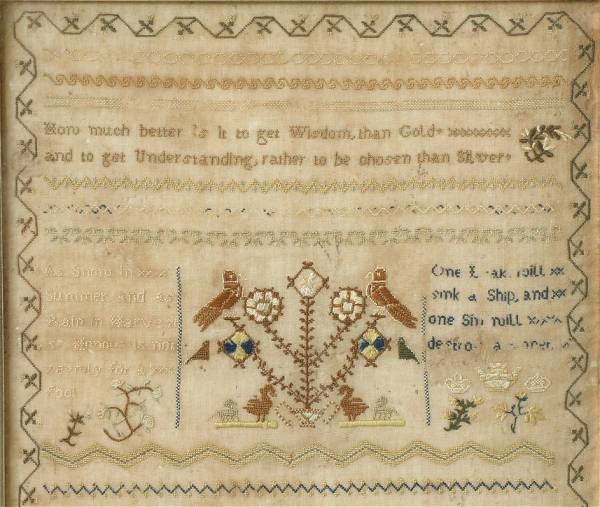 How much better is it to get Wisdom, than Gold
and to get Understanding, rather to be chosen than Silver
As Snow in
Summer and as
Rain in Harvest
so Honour is not
seemly for a
Fool
One Leak will
sink a Ship, and
one Sin will
destroy a Sinner